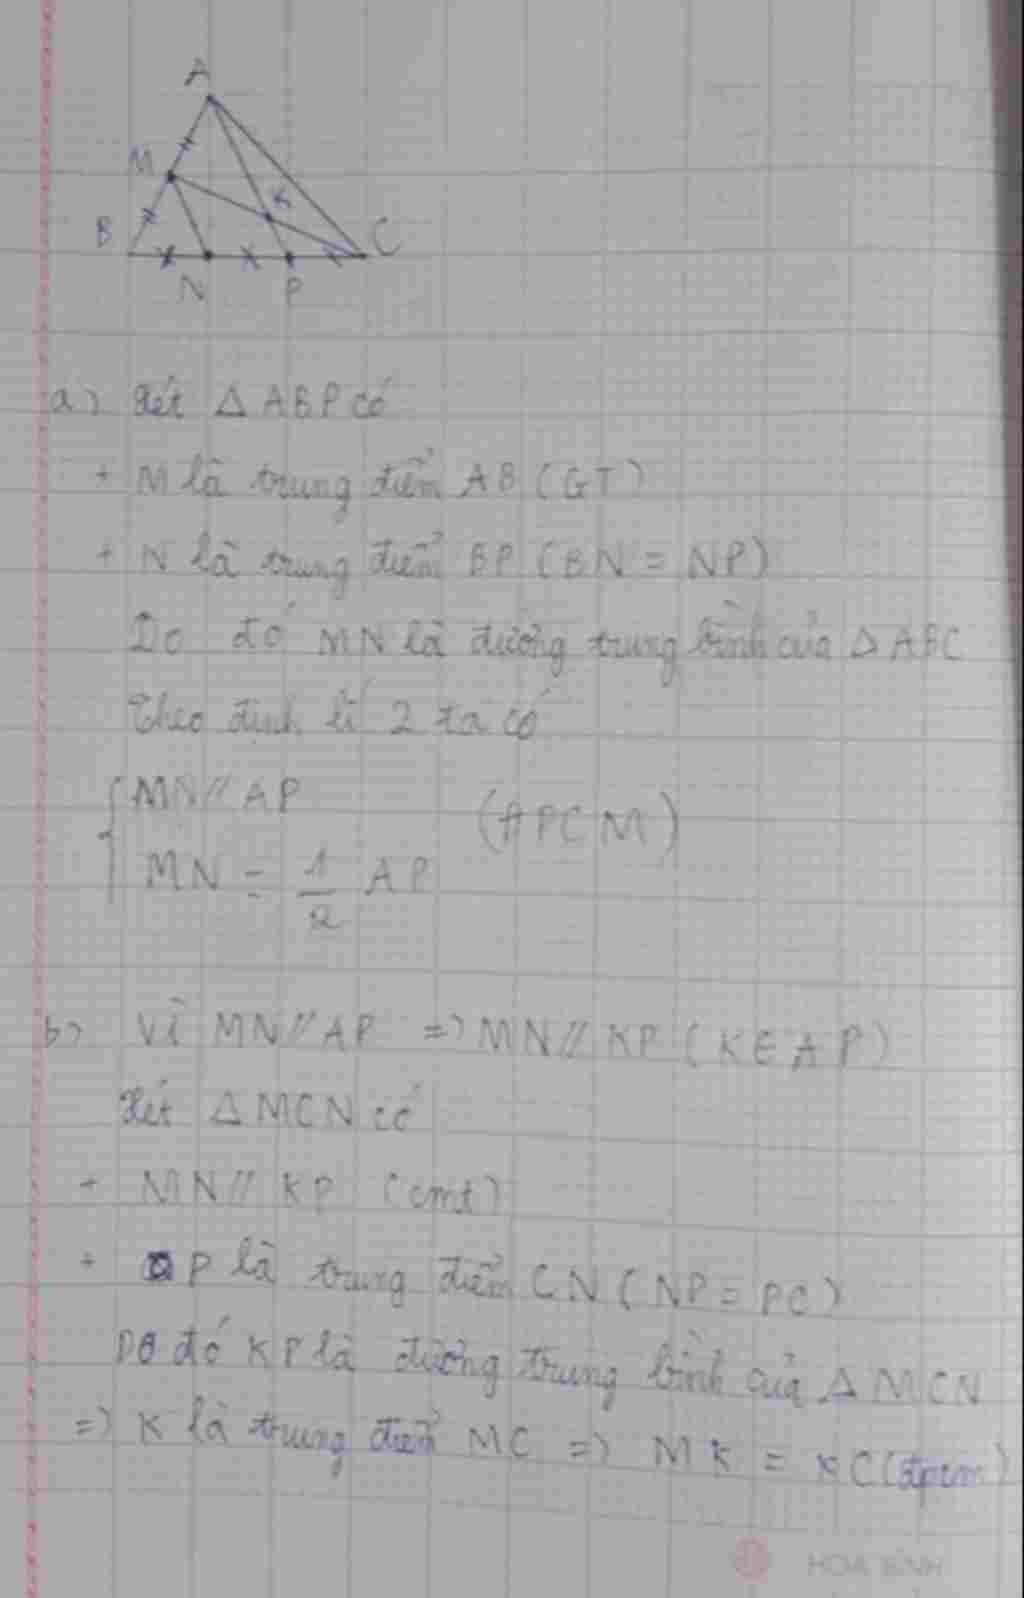 A
M
K
B
C
N
P
a) Xét Δ ABP có
+ M là trung điểm AB (GT)
+ N là trung điểm BP (BN = NP)
Do đó MN là đường trung bình của Δ ABC
Theo định lí 2 ta có
MN // AP
(APCM)
MN = 1/2 AP
b) Vì MN // AP => MN // KP (K∈AP)
Xét Δ MCN có
+ MN // KP (cmt)
+ P là trung điểm CN (NP = PC)
Do đó KP là đường trung bình của Δ MCN
=> K là trung điểm MC => MK = KC (đpcm)
HOA BÌNH